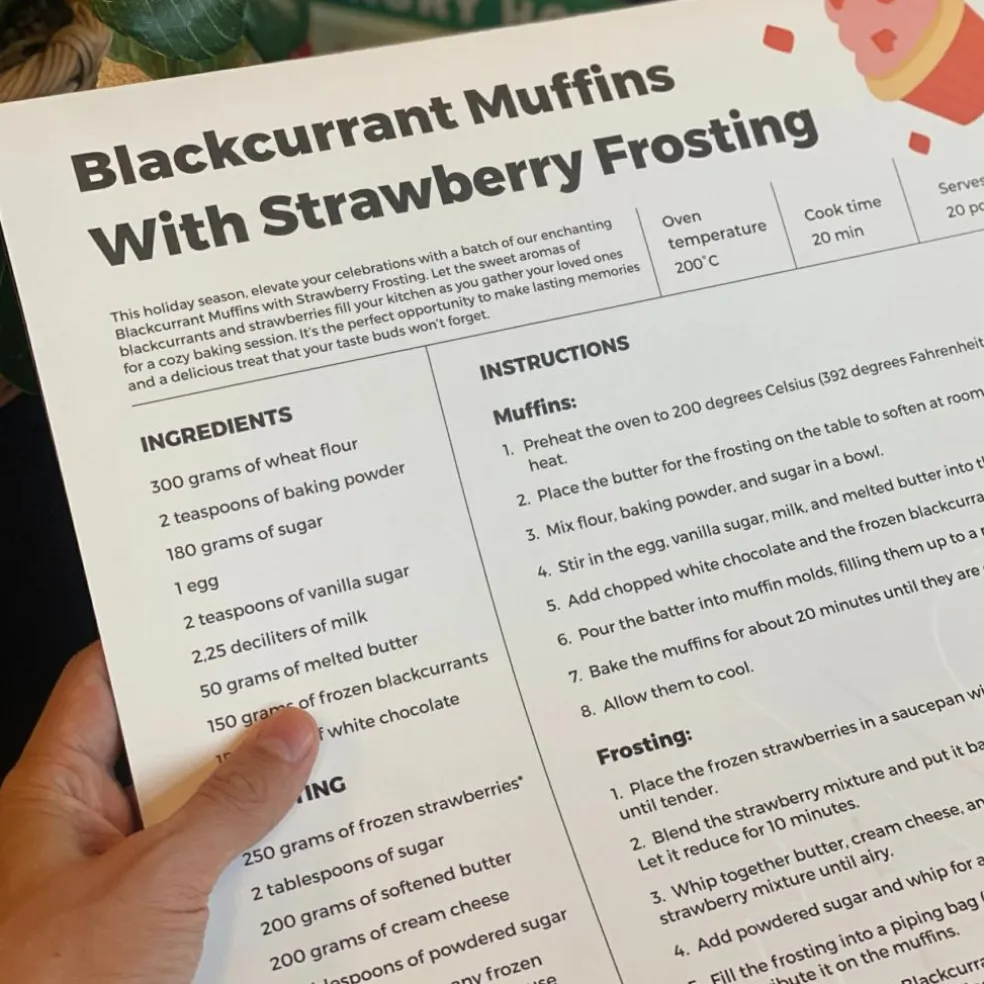 Blackcurrant Muffins
With Strawberry Frosting
This holiday season, elevate your celebrations with a batch of our enchanting
Blackcurrant Muffins with Strawberry Frosting. Let the sweet aromas of
blackcurrants and strawberries fill your kitchen as you gather your loved ones
for a cozy baking session. It's the perfect opportunity to make lasting memories
and a delicious treat that your taste buds won't forget.
Oven
temperature
200°C
Cook time
20 min
Serves
20
INGREDIENTS
300 grams of wheat flour
2 teaspoons of baking powder
180 grams of sugar
1 egg
2 teaspoons of vanilla sugar
2,25 deciliters of milk
50 grams of melted butter
150 grams of frozen blackcurrants
white chocolate
250 grams of frozen strawberries*
2 tablespoons of sugar
200 grams of softened butter
200 grams of cream cheese
of powdered sugar
frozen
INSTRUCTIONS
Muffins:
1. Preheat the oven to 200 degrees Celsius (392 degrees Fahrenheit
heat.
2. Place the butter for the frosting on the table to soften at room
3. Mix flour, baking powder, and sugar in a bowl.
4. Stir in the egg, vanilla sugar, milk, and melted butter into
5. Add chopped white chocolate and the frozen
6. Pour the batter into muffin molds, filling them up to a
7. Bake the muffins for about 20 minutes until they are
8. Allow them to cool.
Frosting:
1. Place the frozen strawberries in a saucepan
until tender.
2. Blend the strawberry mixture and put it
Let it reduce for 10 minutes.
3. Whip together butter, cream cheese,
strawberry mixture until airy.
4. Add powdered sugar and whip for
Fill the frosting into a piping bag
it on the muffins.